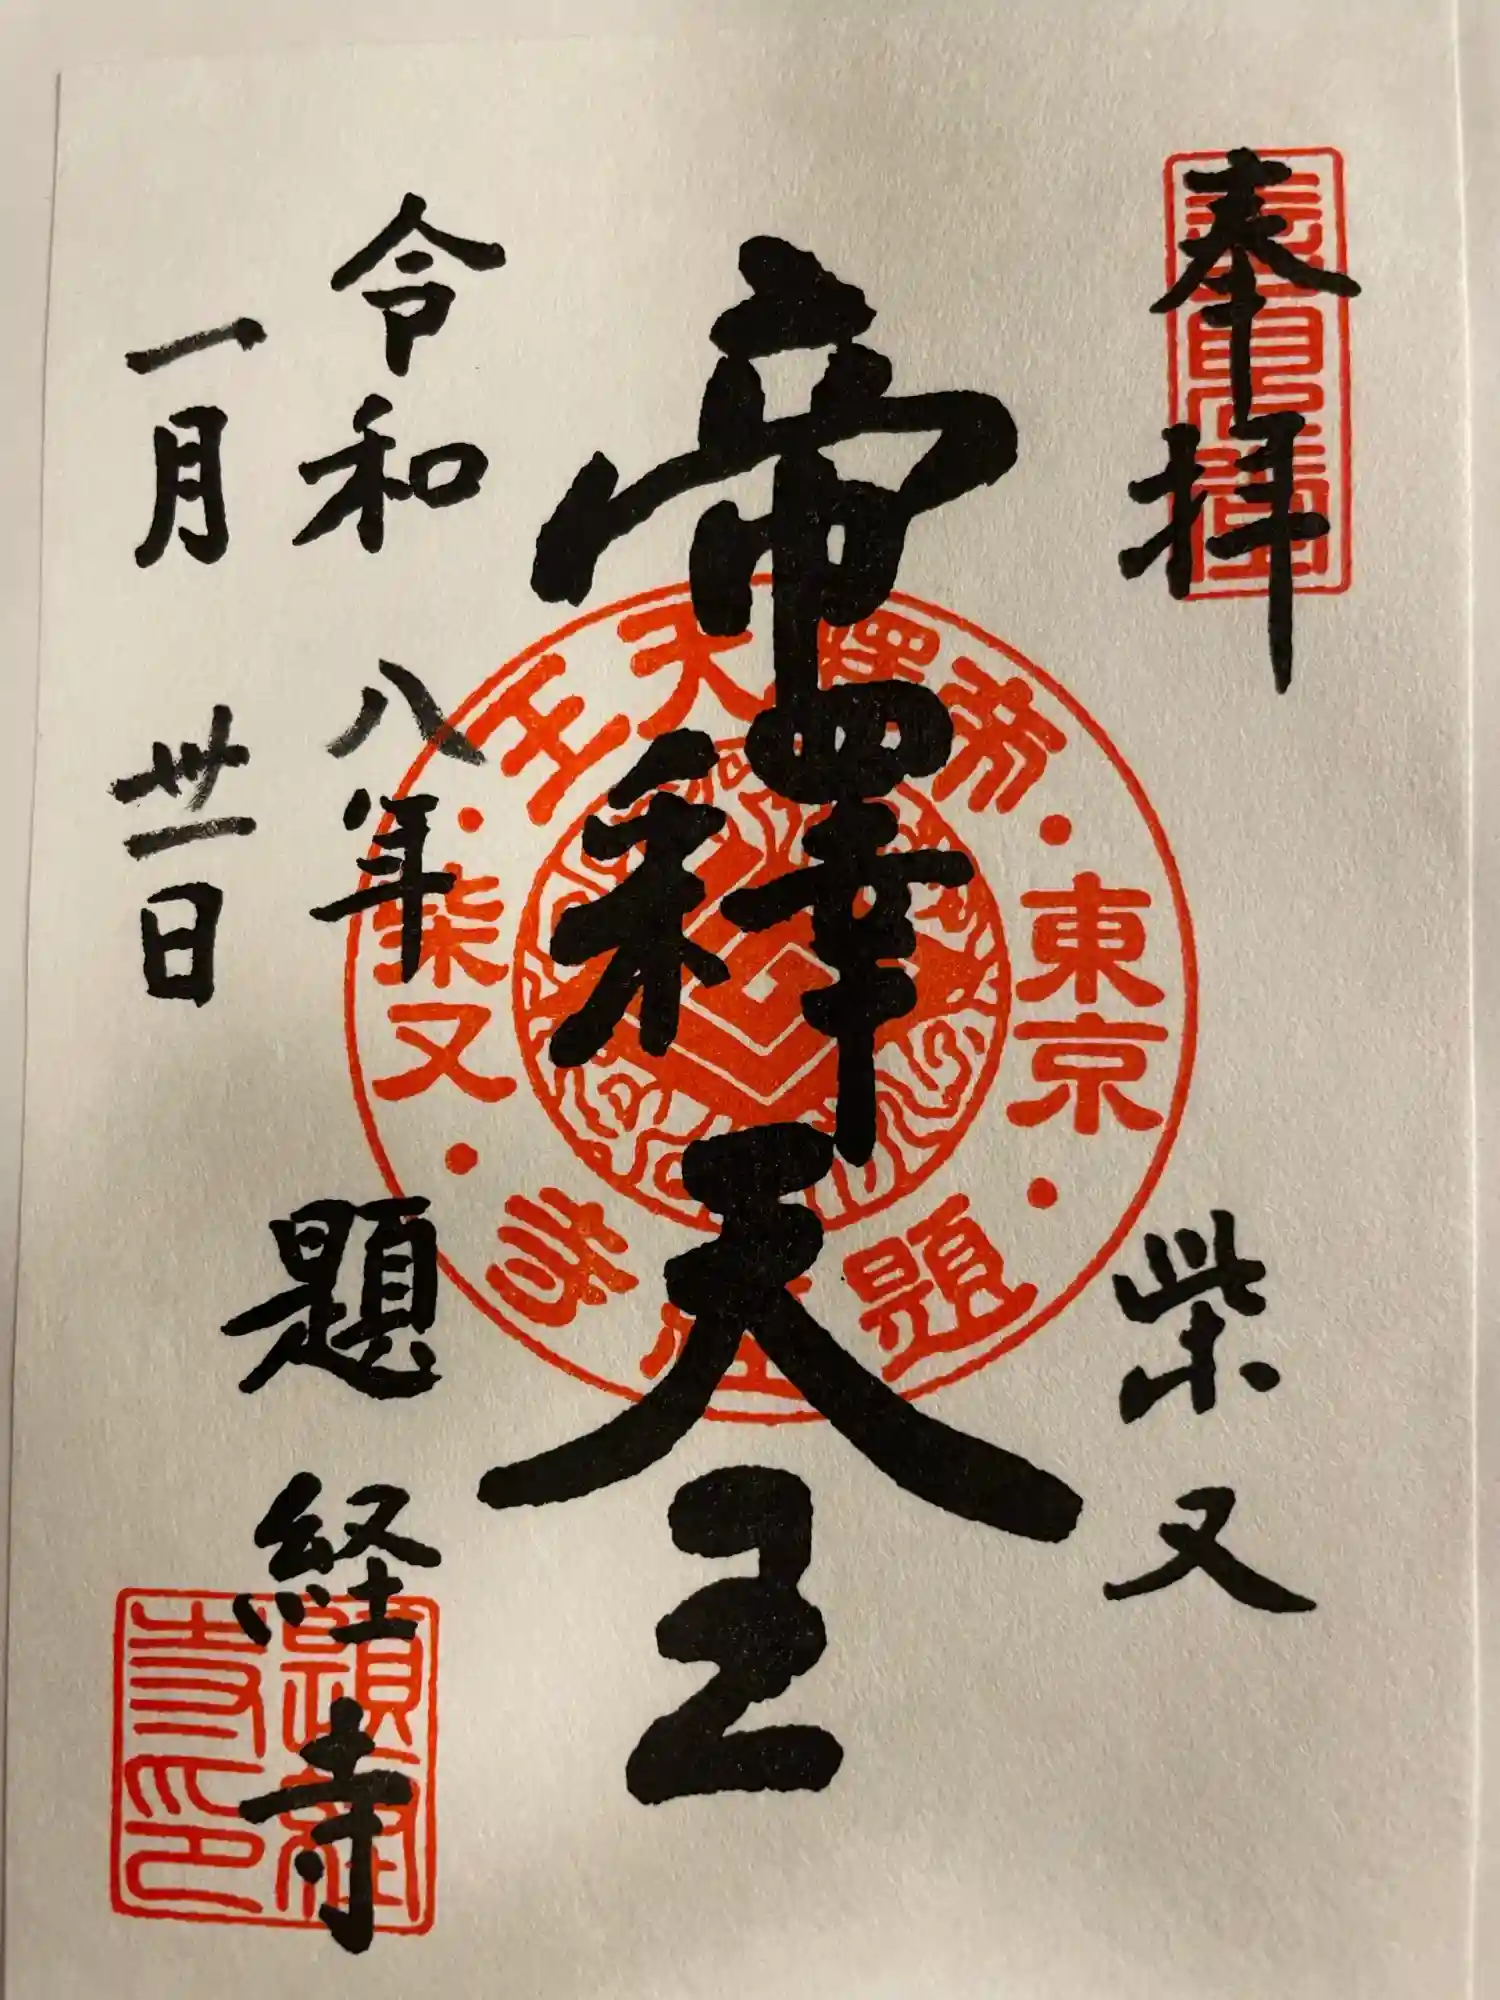 奉拝
柴又
帝釋天王
令和八年
一月卅一日
題経寺
帝釋天王
東京
柴又
題経寺